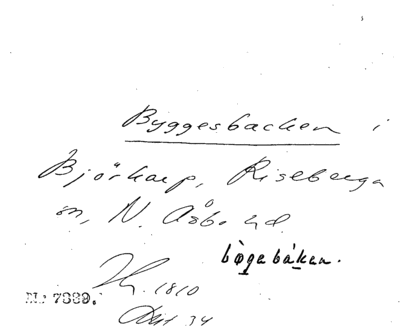 Byggesbacken i
Björkarp, Riseberga
sn, N. Åsbo hd.
bǫgebáken.
1810
Nr 7889.
34